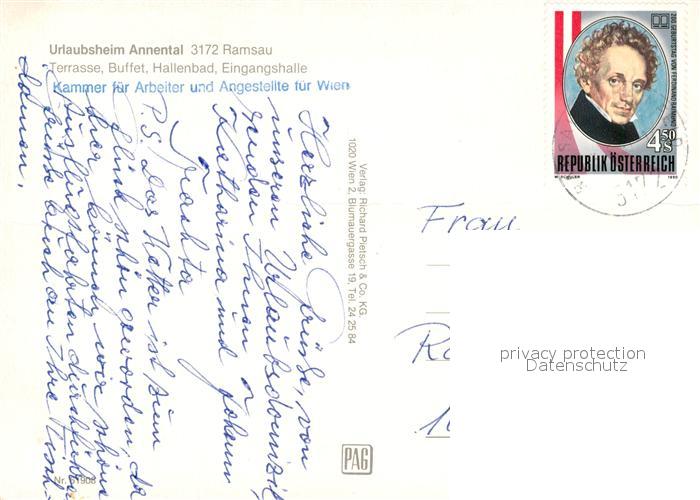 Urlaubsheim Annental 3172 Ramsau
Terrasse, Buffet, Hallenbad, Eingangshalle
Kammer für Arbeiter und Angestellte für Wien
Herzliche Grüße, von
unserem Urlaubsdomizil
senden Ihnen
Katharina und Johann
P.S. Das Wetter ist zum
Glück schön geworden, da
her können wir schöne
Ausflugsfahrten durchführen
Grüsse auch an Ihre Tisch-
damen.
Verlag: Richard Pietsch & Co. KG
1020 Wien 2, Blumauergasse 19, Tel. 24 25 84
PAG
Nr. 61908
200. GEBURTSTAG VON FERDINAND RAIMUND
4.50 S
REPUBLIK ÖSTERREICH
1990
317
Frau
privacy protection
Datenschutz